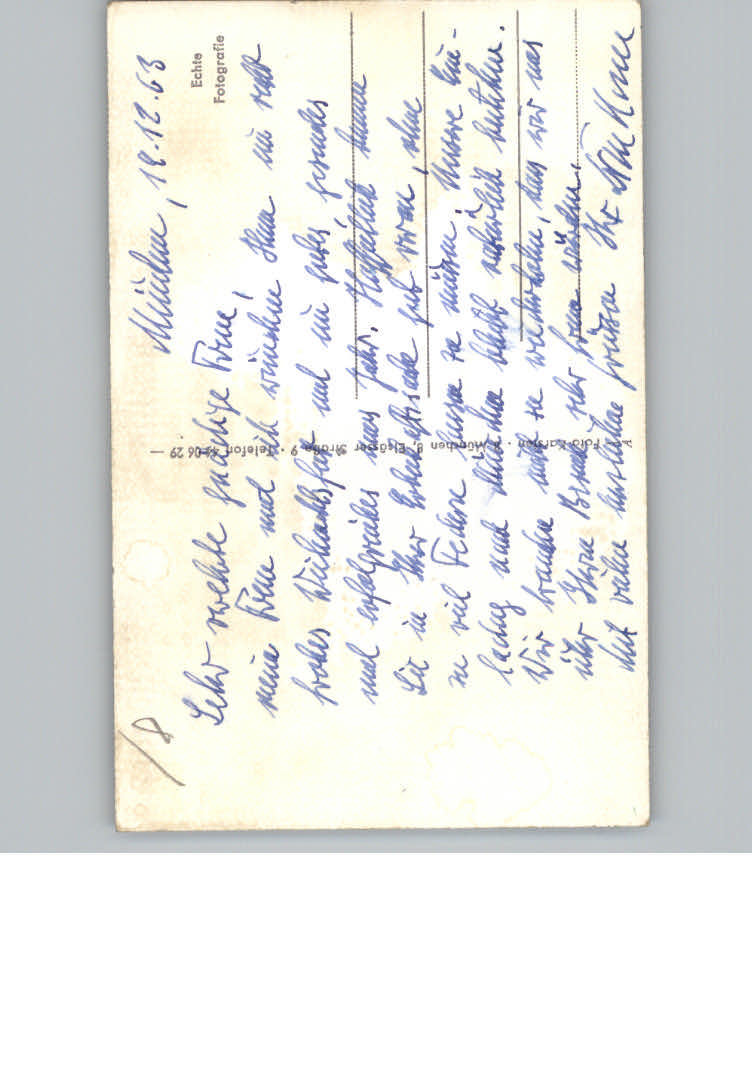 München, 19.12.63
Echte
Fotografie
Sehr verehrte gnädige Frau,
meine Frau und ich wünschen Ihnen ein recht
frohes Weihnachtsfest und ein gutes, gesundes
und erfolgreiches neues Jahr. Hoffentlich kommen
Sie in Ihrer gut voran, ohne
zu viel Federn lassen zu müssen. Unsere Ein-
ladung nach München bleibt natürlich bestehen.
Wir brauchen nicht zu wiederholen, dass wir uns
über Ihren Besuch sehr freuen würden.
Mit vielen herzlichen Grüßen Ihr
Foto-Karsten · München 8, Elsässer Straße 9 · Telefon 44 06 29
/8